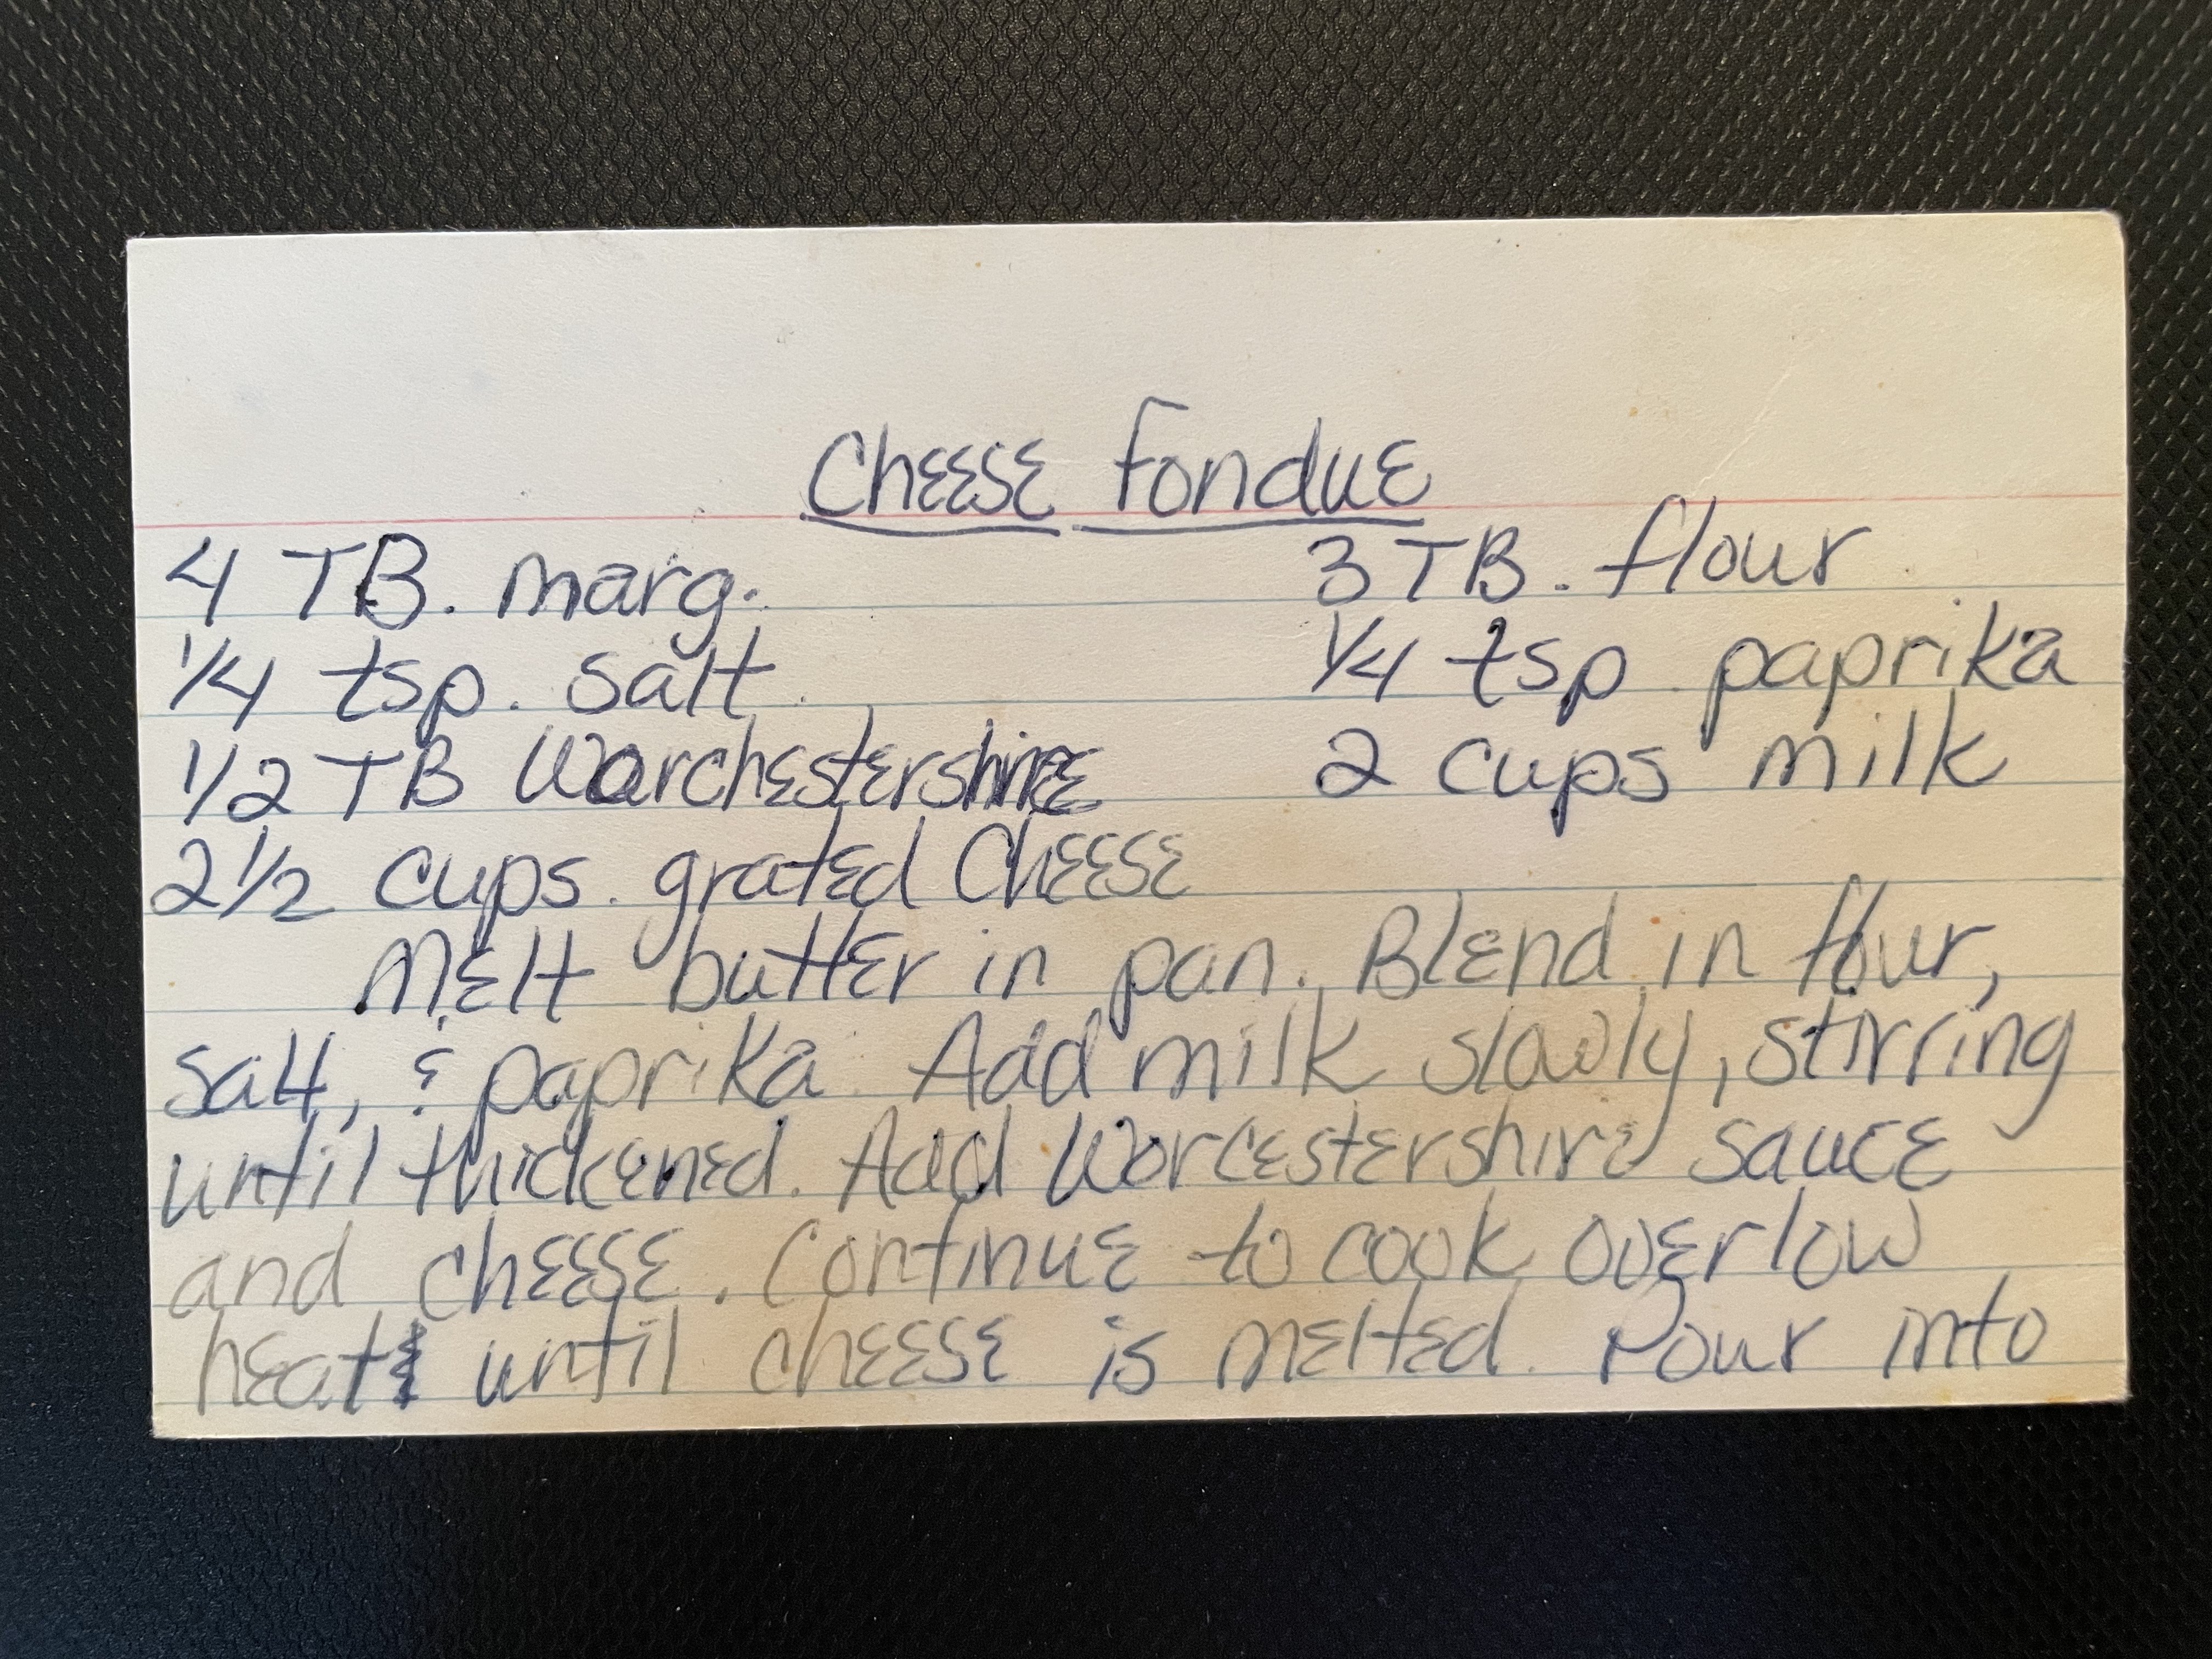 Cheese Fondue
4 TB. marg. 3 TB. flour
1/4 tsp. salt 1/4 tsp paprika
1/2 TB Worchestershire 2 cups milk
2 1/2 cups. grated Cheese
Melt butter in pan. Blend in flour,
salt, & paprika. Add milk slowly, stirring
until thickened. Add Worcestershire sauce
and cheese. Continue to cook over low
heat & until cheese is melted. Pour into